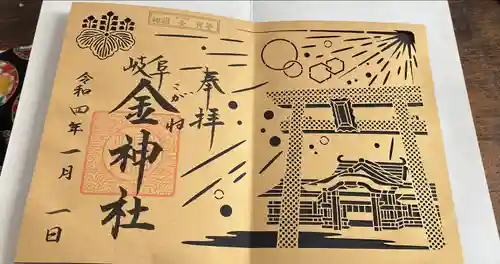 奉拝
岐阜
こがね
金神社
令和四年一月一日